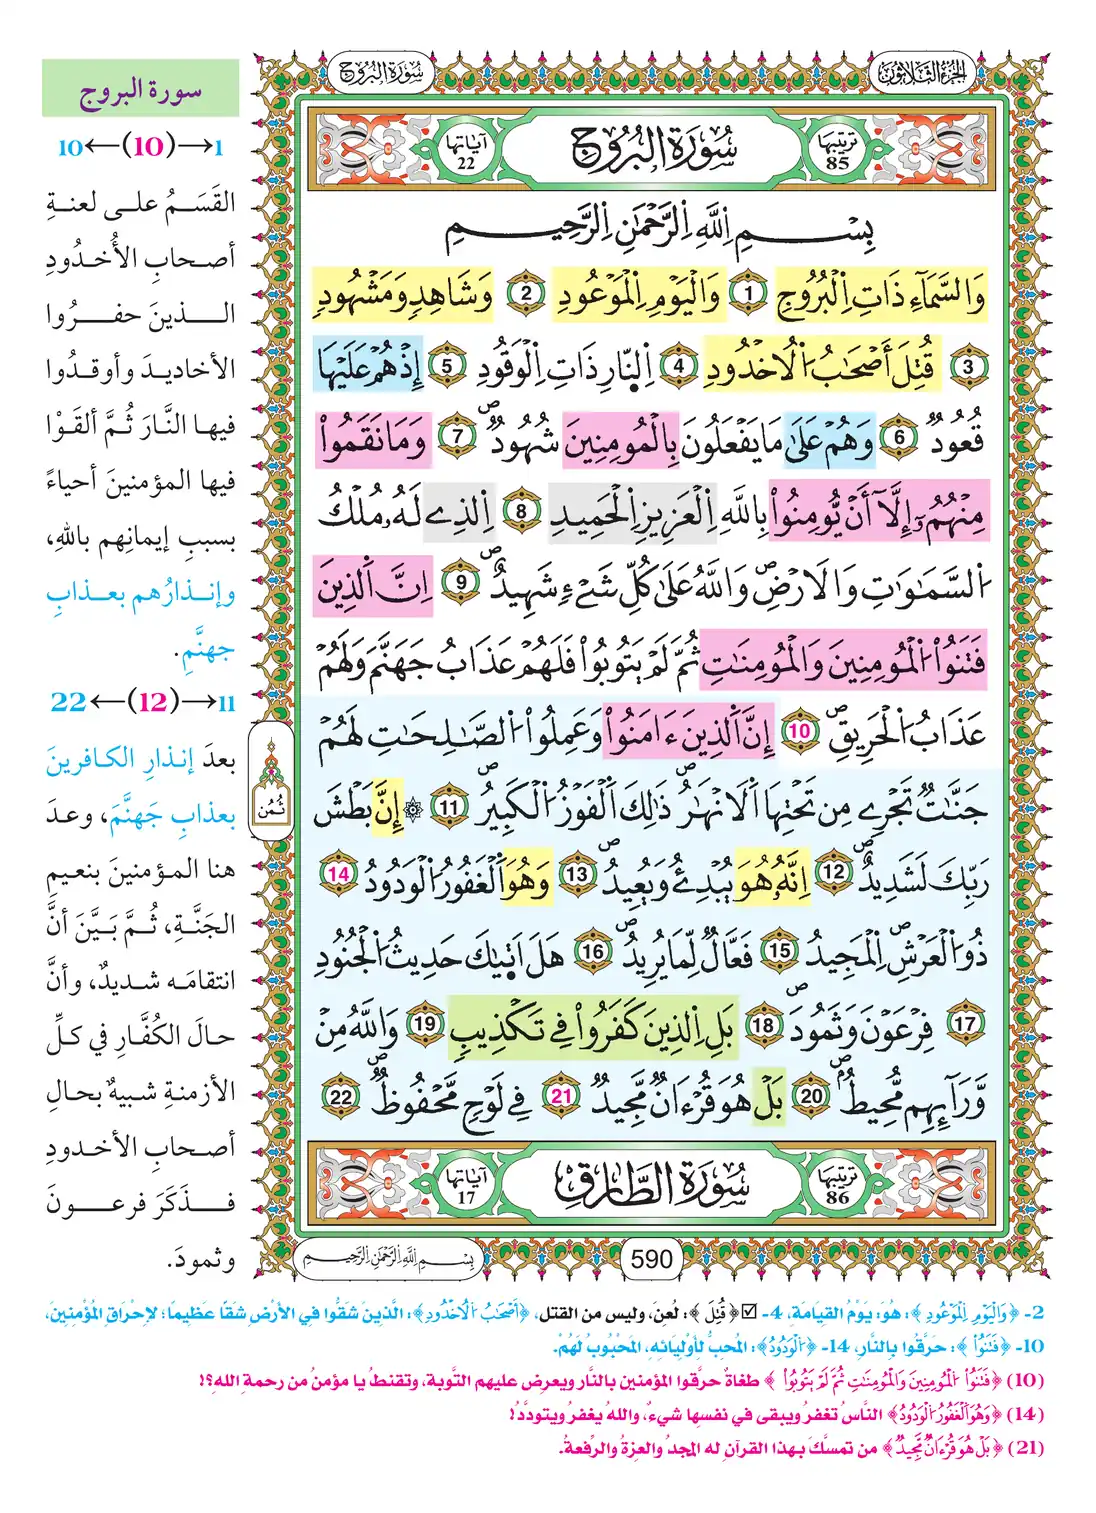 الجزء الثلاثون
سورة البروج
ترتيبها 85
سورة البروج
آياتها 22
بِسْمِ اِللَّهِ اِلرَّحْمَٰنِ اِلرَّحِيمِ
وَالسَّمَآءِ ذَاتِ اِلْبُرُوجِ 1 وَالْيَوْمِ اِلْمَوْعُودِ 2 وَشَاهِدٖ وَمَشْهُودٖ
3 قُتِلَ أَصْحَٰبُ اُلُاخْدُودِ 4 اِلنّ۪ارِ ذَاتِ اِلْوَقُودِ 5 إِذْ هُمْ عَلَيْهَا
قُعُودٞ 6 وَهُمْ عَلَىٰ مَا يَفْعَلُونَ بِالْمُومِنِينَ شُهُودٞ 7 وَمَا نَقَمُواْ
مِنْهُمُۥٓ إِلَّآ أَنْ يُّومِنُواْ بِاللَّهِ اِلْعَزِيزِ اِلْحَمِيدِ 8 اِلذِے لَهُۥ مُلْكُ
اُلسَّمَٰوَٰتِ وَالَارْضِ وَاللَّهُ عَلَىٰ كُلِّ شَےْءٖ شَهِيدٌ 9 اِنَّ اَلذِينَ
فَتَنُواْ اُلْمُومِنِينَ وَالْمُومِنَٰتِ ثُمَّ لَمْ يَتُوبُواْ فَلَهُمْ عَذَابُ جَهَنَّمَ وَلَهُمْ
عَذَابُ اُلْحَرِيقِ 10 إِنَّ اَلذِينَ ءَامَنُواْ وَعَمِلُواْ اُلصَّٰلِحَٰتِ لَهُمْ
جَنَّٰتٞ تَجْرِے مِن تَحْتِهَا اَلَانْهَٰرُ ذَٰلِكَ اَلْفَوْزُ اُلْكَبِيرُ 11 ۞ إِنَّ بَطْشَ
رَبِّكَ لَشَدِيدٌ 12 اِنَّهُۥ هُوَ يُبْدِئُ وَيُعِيدُ 13 وَهُوَ اَلْغَفُورُ اُلْوَدُودُ 14
ذُو اُلْعَرْشِ اِلْمَجِيدُ 15 فَعَّالٞ لِّمَا يُرِيدُ 16 هَلَ اَت۪يٰكَ حَدِيثُ اُلْجُنُودِ
17 فِرْعَوْنَ وَثَمُودَ 18 بَلِ اِلذِينَ كَفَرُواْ فِے تَكْذِيبٖ 19 وَاللَّهُ مِنْ
وَّرَآئِهِم مُّحِيطٌ 20 بَلْ هُوَ قُرْءَانٞ مَّجِيدٞ 21 فِے لَوْحٖ مَّحْفُوظٞ 22
ثمن
ترتيبها 86
سورة الطارق
آياتها 17
590
بِسْمِ اِللَّهِ اِلرَّحْمَٰنِ اِلرَّحِيمِ
سورة البروج
1←(10)→10
القَسَمُ على لعنةِ
أصحابِ الأُخدُودِ
الذينَ حفرُوا
الأخاديدَ وأوقدُوا
فيها النَّارَ ثُمَّ ألقَوْا
فيها المؤمنينَ أحياءً
بسببِ إيمانِهم باللهِ،
وإنذارُهم بعذابِ
جهنَّمِ.
11←(12)→22
بعدَ إنذارِ الكافرينَ
بعذابِ جَهنَّمَ، وعدَ
هنا المؤمنينَ بنعيمِ
الجَنَّةِ، ثُمَّ بَيَّنَ أنَّ
انتقامَه شديدٌ، وأنَّ
حالَ الكُفَّارِ في كلِّ
الأزمنةِ شبيهٌ بحالِ
أصحابِ الأخدودِ
فذَكَرَ فرعونَ
وثمودَ.
2- ﴿وَالْيَوْمِ اِلْمَوْعُودِ﴾: هُوَ: يَوْمُ القِيَامَةِ، 4- ☑ ﴿قُتِلَ﴾: لُعِنَ، وليس من القتل، ﴿أَصْحَٰبُ اُلُاخْدُودِ﴾: الَّذِينَ شَقُّوا فِي الأَرْضِ شَقًّا عَظِيمًا؛ لإِحْرَاقِ المُؤْمِنِينَ،
10- ﴿فَتَنُواْ﴾: حَرَّقُوا بِالنَّارِ، 14- ﴿اُلْوَدُودُ﴾: المُحِبُّ لِأَوْلِيَائِهِ، المَحْبُوبُ لَهُمْ.
(10) ﴿فَتَنُواْ اُلْمُومِنِينَ وَالْمُومِنَٰتِ ثُمَّ لَمْ يَتُوبُواْ﴾ طغاةٌ حرَّقوا المؤمنين بالنَّار ويعرض عليهم التَّوبة، وتقنطُ يا مؤمنُ من رحمةِ اللهِ؟!
(14) ﴿وَهُوَ اَلْغَفُورُ اُلْوَدُودُ﴾ النَّاسُ تَغفرُ ويبقى في نفسها شيءٌ، واللهُ يغفرُ ويتودَّدُ!
(21) ﴿بَلْ هُوَ قُرْءَانٞ مَّجِيدٞ﴾ من تمسَّكَ بهذا القرآنِ له المجدُ والعزةُ والرِّفعةُ.